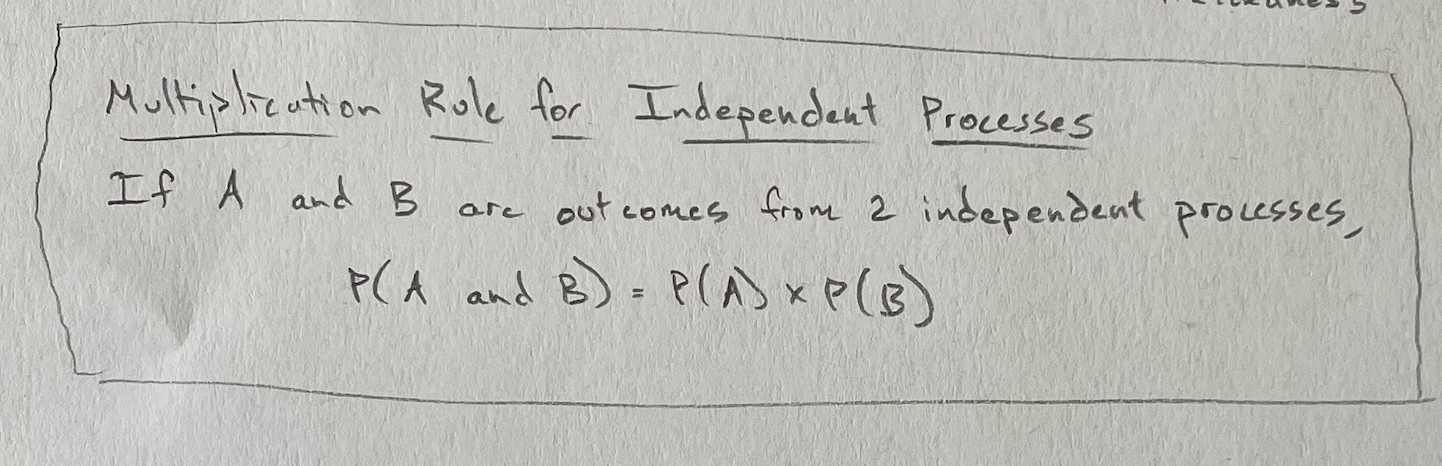 Multiplication Rule for Independent Processes
If A and B are outcomes from 2 independent processes,
P(A and B) = P(A) x P(B)